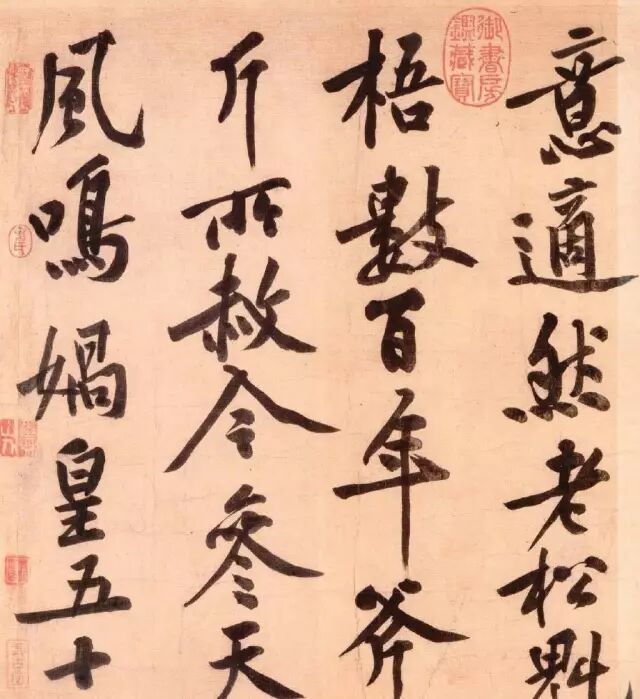 意適然老松魁
御書房鑑藏寶
梧數百年斧
斤所赦今參天
風鳴媧皇五十